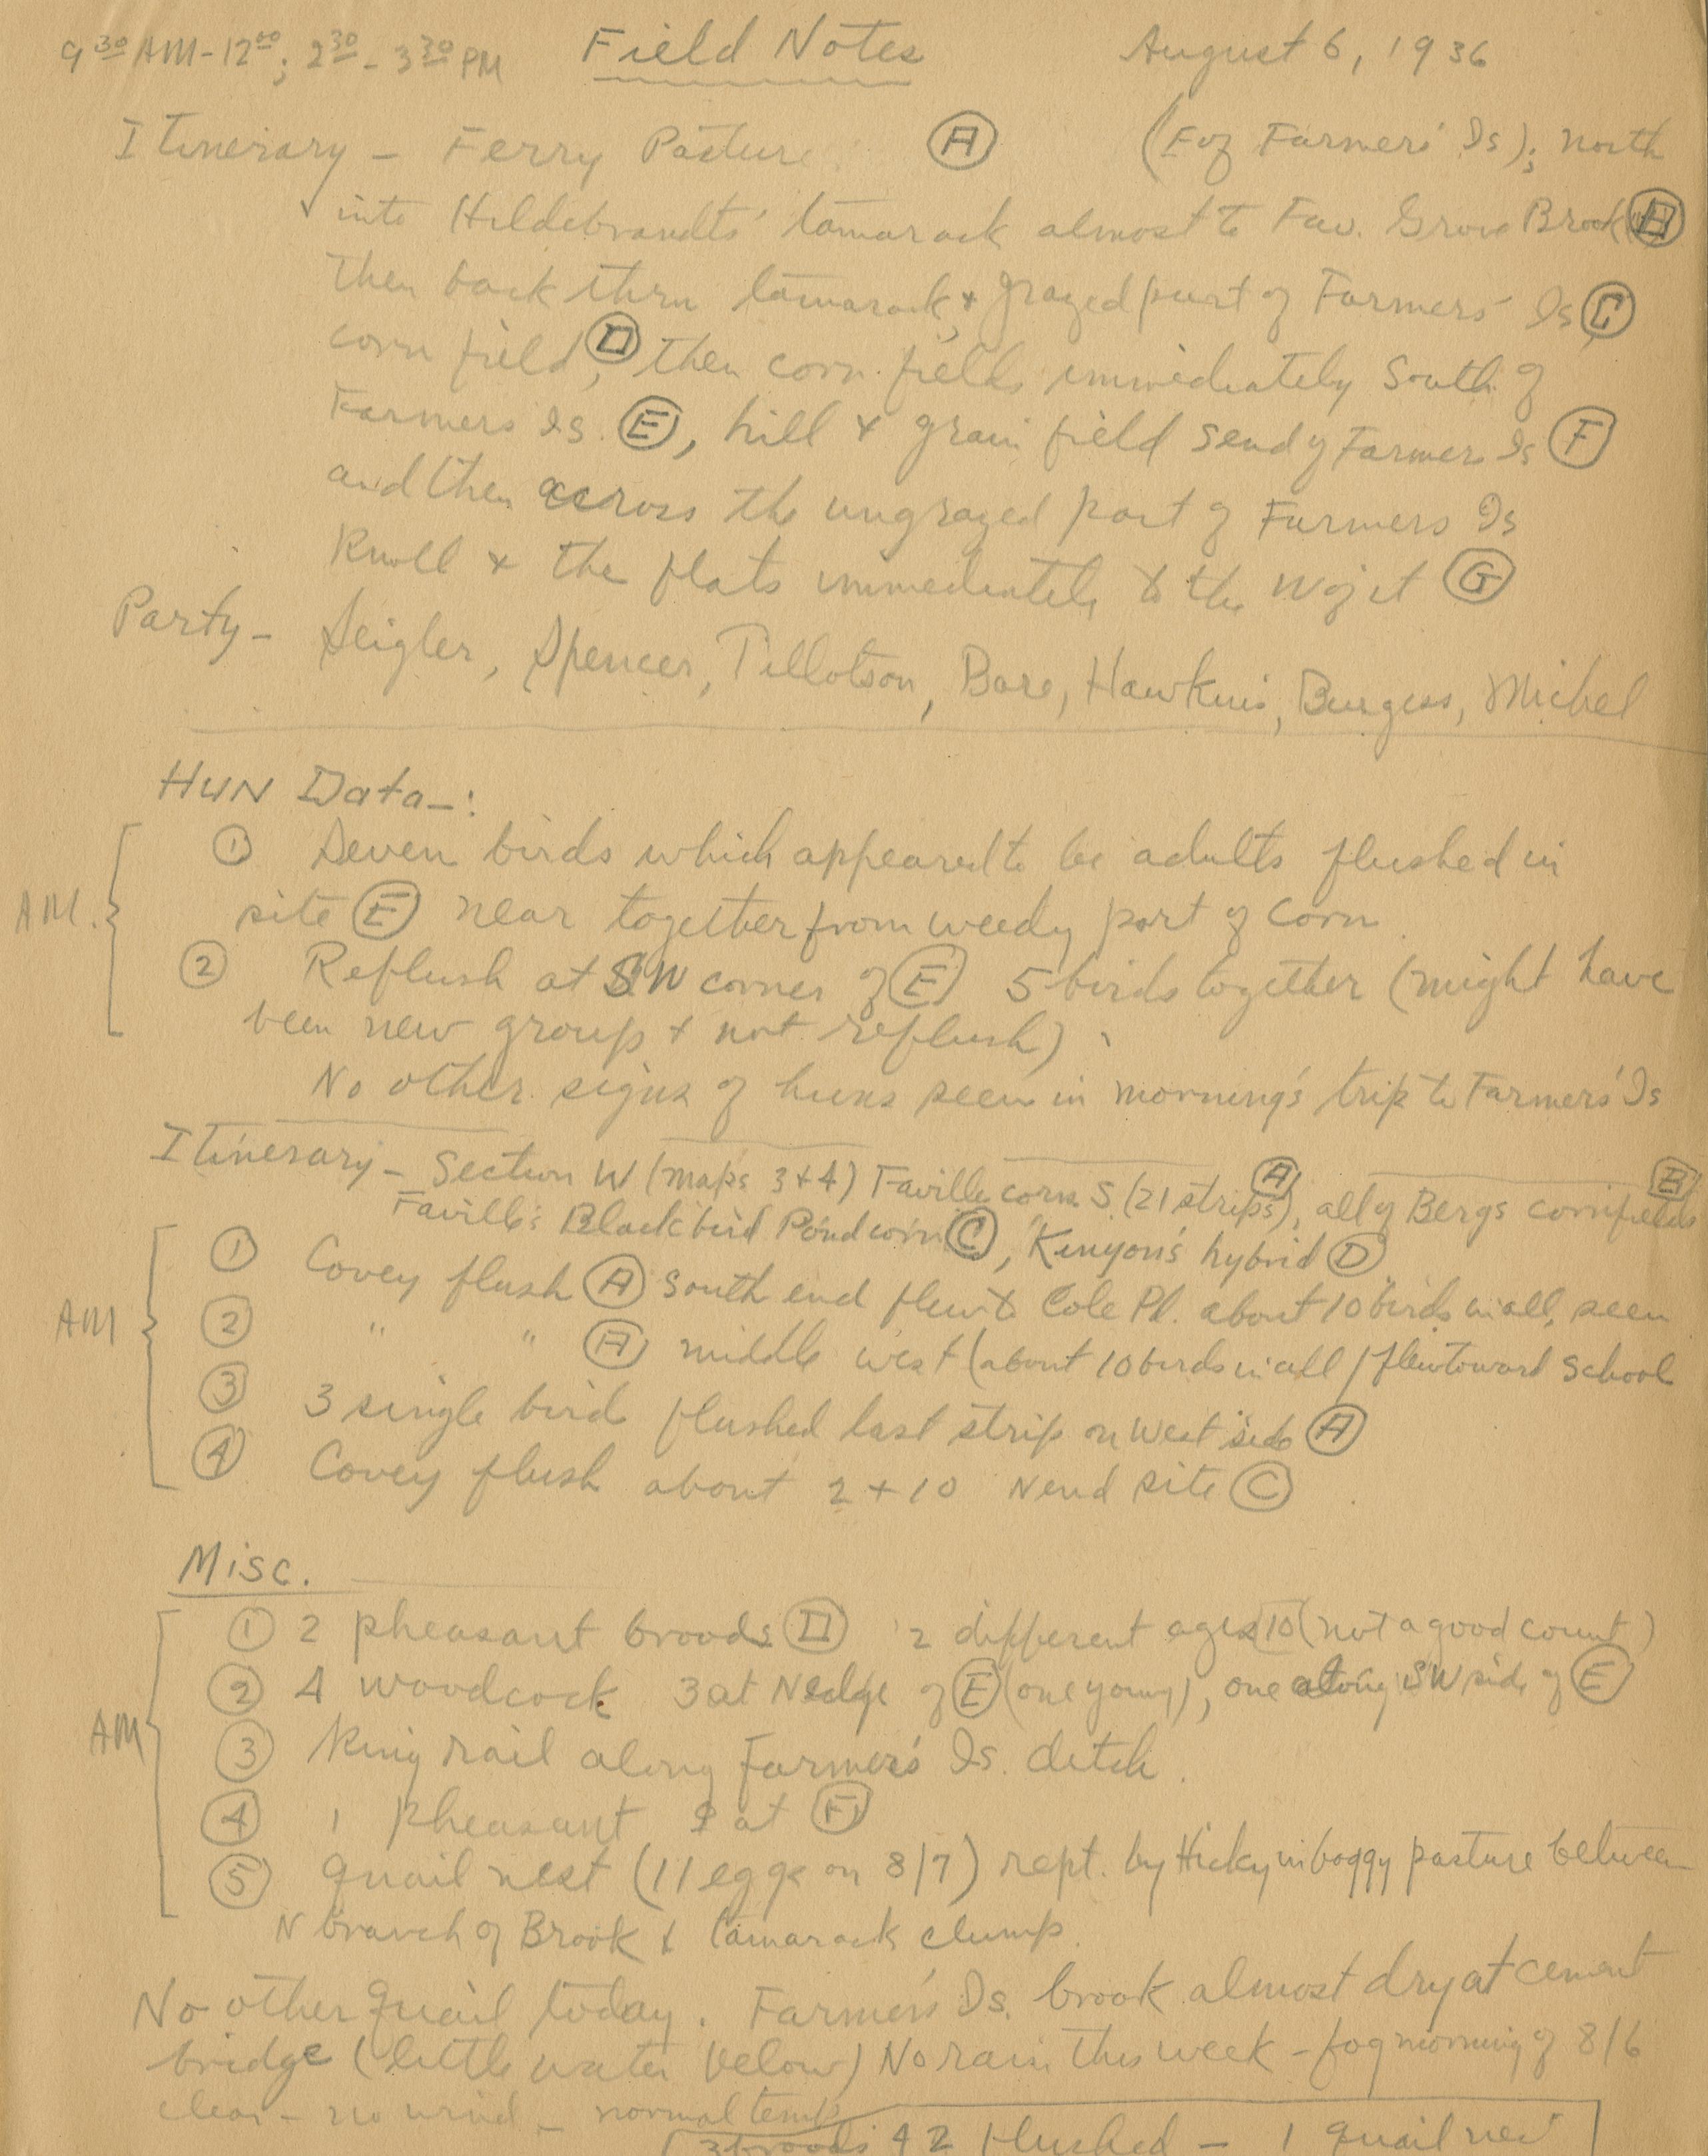 9 30 AM - 12 00; 2 30 - 3 30 PM Field Notes August 6, 1936
Itinerary - Ferry Pasture (A) (E of Farmers' Is); north
into Hildebrandts' tamarack almost to Fav. Grove Brook (B)
then back thru tamarack, + grazed part of Farmers' Is (C)
corn field (D), then corn fields immediately South of
Farmers Is. (E), hill + grain field S end of Farmers Is (F)
and then across the ungrazed part of Farmers Is
Knoll + the flats immediately to the W of it (G)
Party - Seigler, Spencer, Tillotson, Bare, Hawkins, Burgess, Michel
HUN Data -:
AM.
(1) Seven birds which appeared to be adults flushed in
site (E) near together from weedy part of corn.
(2) Reflush at SW corner of (E) 5 birds together (might have
been new group + not reflush).
No other signs of huns seen in morning's trip to Farmers' Is
Itinerary - Section W (maps 3+4) Faville corn S. (21 strips) (A), all of Bergs cornfields (B)
Faville's Blackbird Pond corn (C), Kenyon's hybrid (D)
AM
(1) Covey flush (A) South end flew to Cole Pl. about 10 birds in all, seen
(2) " " (A) middle west (about 10 birds in all) flew toward School
(3) 3 single birds flushed last strip on west side (A)
(4) Covey flush about 2 + 10 N end site (C)
Misc.
AM
(1) 2 pheasant broods (D) 2 different ages 10 (not a good count)
(2) 4 woodcock. 3 at N edge of (E) (one young), one along SW side of (E)
(3) King rail along Farmer's Is. ditch.
(4) 1 Pheasant ♀ at (F)
(5) Quail nest (11 eggs on 8/7) rept. by Hickey in boggy pasture between
N branch of Brook & tamarack clump.
No other quail today. Farmers' Is. brook almost dry at cement
bridge (little water below) No rain this week - fog morning of 8/6
clear - no wind - normal temp
3 broods 42 flushed - 1 quail nest